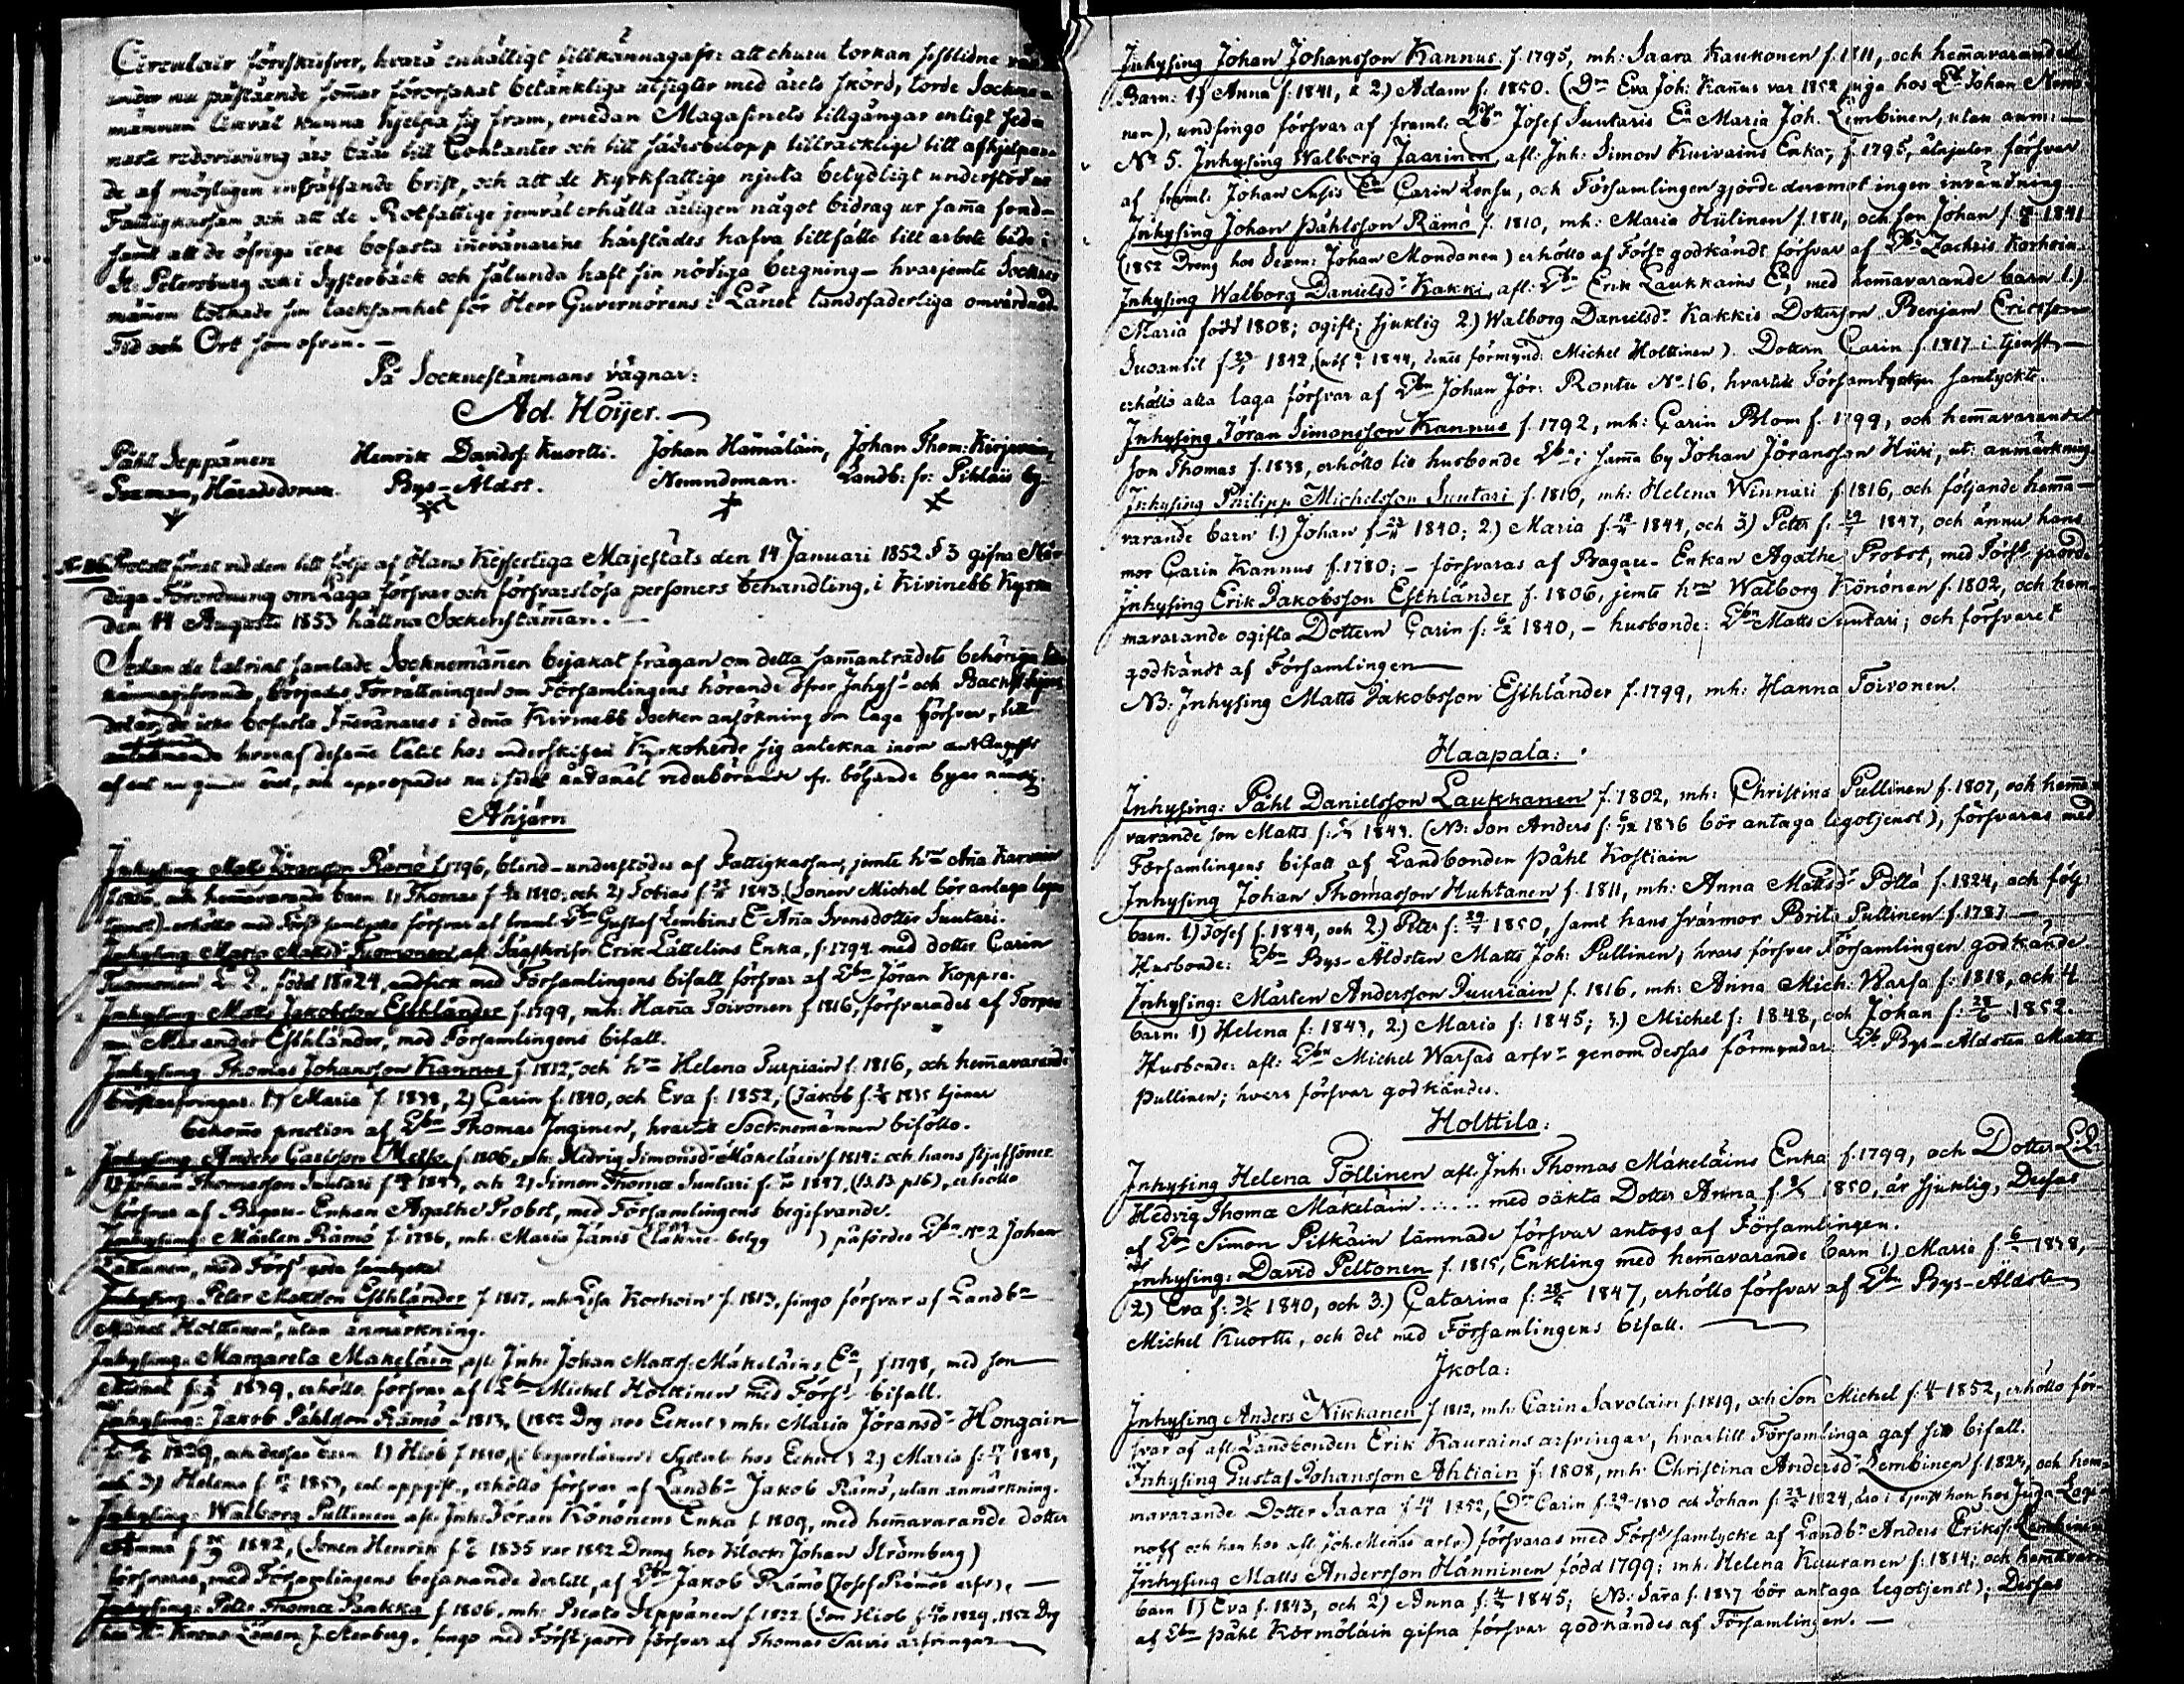 Circulair föreskrifver, hvarå enhälligt tillkännagafs: att ehuru torkan sistlidne
under nu påstående sommar förorsakat betänkliga utsigter med årets skörd, torde Sockne-
männen likväl kunna hjelpa sig fram, emedan Magasinets tillgångar enligt sed-
naste redovisning äro både till Contanter och till sädesbelopp tillräcklige till afhjelpan-
de af möjligen inträffande brist, och att de kyrkfattige njuta betydligt understöd ur
Fattigkassan och att de Rotfattige jemväl erhålla årligen något bidrag ur samma fond-
samt att de öfriga icke bofasta innevånarene härstädes hafva tillfälle till arbete både i
St. Petersburg och i Systerbäck och sålunda haft sin nödiga bergning — hvarjemte Sockne-
männen tolkade sin tacksamhet för Herr Guvernörens i Länet landsfaderliga omvårdnad.
Tid och Ort som ofvan. —
På Socknestämmans vägnar:
Ad. Höijer.
Påhl Seppänen Henrik Davidss: Kuortti. Johan Hämäläin, Johan Thom: Kirjavain,
Sexman, Häradsdomar. Bys-Äldst. Nemndeman. Landb: fr: Pihlais by.
Protokoll fördt vid den till följe af Hans Kejserliga Majestäts den 14 Januari 1852 § 3 gifna Nå-
diga Förordning om Laga försvar och försvarslösa personers behandling, i Kivinebb Kyrka
den 14 Augusti 1853 hållna Sockenstämman. —
Sedan de talrikt samlade Socknemännen bejakat frågan om detta sammanträdets behöriga
kännagifvande, börjades Förrättningen om Församlingens hörande öfver Inhys- och
de icke bofasta Innevånares i denna Kivinebb Socken ansökning om laga försvar,
hvaraf desamme låtit hos underskrifven Kyrkoherde sig anteckna inom
af
Ahjärvi
Inhysing Matts Jöransson Rämö f. 1796, blind - understödes af Fattigkassan, jemte h:u Ana
och hemmavarande barn 1) Thomas f. 1840; och 2) Tobias f. 1843, (Sonen Michel bör antaga lego-
tjenst) - erhöllo med Förs: samtycke försvar af framl: Lbn Gustaf Lembins E:a Ana Svensdotter Suntari.
Inhysing Maria Mattsd: Tuomonen, afl: Erik Lättelins Enka, f. 1794 med dotter Carin
Tuomonen L. D., född 1824, undfick med Församlingens bifall försvar af Lbn Jöran Koppra.
Inhysing Matts Jakobsson Esthländer f. 1799, mh: Hana Toivonen f. 1816, försvarades af Torpa-
ren Alexander Esthländer, med Församlingens bifall.
Inhysing Thomas Johansson Kannus f. 1812, och h:u Helena Turpiain f. 1816, och hemmavarande
bröstarfvingar: 1) Maria f. 1838, 2) Carin f. 1840, och Eva f. 1852, (Jakob f. 1835 tjenar
bekomo præction af Lbn Thomas Inginen, hvartill Socknemännen biföllo.
Inhysing Anders Carlsson Melto f. 1806, mh: Hedvig Simonsd: Mäkeläin f. 1814; och hans styfsöner
1) Johan Thomasson Suntari f. 1843, och 2) Simon Thomæ Suntari f. 1847, erhöllo
försvar af Bagare-Enkan Agathe Probst, med Församlingens begifvande.
Inhysing: Mårten Rämö f. 1786, mh: Maria Jänis ( ) påfördes Lbn N:o 2 Johan
med Förs: goda samtycke
Inhysing Peter Mattson Esthländer f. 1817, mh: Lisa Korhoin f. 1813, fingo försvar af Landb:n
Michel Holttinen, utan anmärkning.
Inhysing: Margareta Mäkeläin, afl: Inh: Johan Mattss: Mäkeläins E:a, f. 1798, med son
Michel f. 1839, erhöllo försvar af Lbn Michel Holttinen med Förs: bifall.
Inhysing: Jakob Påhlsson Rämö f. 1813, (1852 Drg hos Eckert) mh: Maria Jöransd: Hongain
1829, och dessas barn 1) Hiob f. 1850, 2) Maria f. 1848,
och 3) Helena f. 1853, enl: uppgift, erhöllo försvar af Landb:n Jakob Rämö, utan anmärkning.
Inhysing: Walborg Pullinen afl: Inh: Jöran Könönens Enka f. 1809, med hemmavarande dotter
Anna f. 1842, (Sonen Henrik f. 1835 var 1852 Dreng hos Klock: Johan Strömberg)
försvaras, med Församlingens bejakande dertill, af Lbn Jakob Rämö (Josef Rämös arfv:). —
Inhysing: Peter Thomæ Pakka f. 1806, mh: Beata Seppänen f. 1822 (Son Hiob f. 1829, 1852 Drg
hos J. Stenberg. fingo med Förs: ja ord försvar af Thomas Sarvis arfvingar
Inhysing Johan Johansson Kannus f. 1795, mh: Saara Kaukonen f. 1811, och hemmavarande
Barn: 1) Anna f. 1841, & 2) Adam f. 1850. (Dn Eva Joh: Kannus var 1852 piga hos Lb Johan
nen), undfingo försvar af framl: Lbn Josef Suntaris E:a Maria Joh. Lembinen, utan anm: —
No 5. Inhysing Walborg Jaarinen, afl: Inh: Simon Kuivains Enka, f. 1795, åtnjuter försvar
af framl: Johan Susis E:a Carin Lensu, och Församlingen gjorde deremot ingen invändning.
Inhysing Johan Påhlsson Rämö f. 1810, mh: Maria Hülinen f. 1811, och son Johan f. 1841
(1852 Dreng hos Sexm: Johan Mondonen) erhöllo af Förs: godkändt försvar af Lbn Zachris Korhoin.
Inhysing Walborg Danielsd: Kakki, afl: Lbn Erik Laukkains E:a, med hemmavarande barn 1.)
Maria född 1808; ogift; sjuklig 2.) Walborg Danielsd: Kakkis Dotterson Benjam Ericsson
Suvantil f. 1842, ( 1844, dess förmynd: Michel Holttinen). Dottern Carin f. 1817 i tjenst —
erhöllo alla laga försvar af Lbn Johan Jör: Rontu No 16, hvartill Församlingen samtyckte.
Inhysing Jöran Simonsson Kannus f. 1792, mh: Carin Blom f. 1799, och hemmavarande
son Thomas f. 1838, erhöllo till husbonde Lbn i samma by Johan Jöransson Hüri, ut: anmärkning.
Inhysing Philipp Michelsson Suntari f. 1810, mh: Helena Winnari f. 1816, och följande hemma-
varande barn 1.) Johan f. 1840; 2.) Maria f. 1844, och 3) Peter f. 1847, och ännu hans
mor Carin Kannus f. 1780; — försvaras af Bagare-Enkan Agathe Probst, med Förs: ja ord.
Inhysing Erik Jakobsson Esthländer f. 1806, jemte h:u Walborg Könönen f. 1802, och hem-
mavarande ogifta Dottern Carin f. 1840, — husbonde: Lbn Matts Suntari; och försvaret
godkändt af Församlingen
NB: Inhysing Matts Jakobsson Esthländer f. 1799, mh: Hanna Toivonen.
Haapala:
Inhysing: Påhl Danielsson Laukkanen f. 1802, mh: Christina Pullinen f. 1807, och hemma-
varande son Matts f. 1843. (NB: Son Anders f. 1836 bör antaga legotjenst), försvaras med
Församlingens bifall af Landbonden Påhl Kostiain
Inhysing Johan Thomasson Huhtanen f. 1811, mh: Anna Mattsd: Pöllä f. 1824, och följ:
barn. 1) Josef f. 1844, och 2.) Peter f. 29 1850, samt hans svärmor Brita Pullinen f. 1787 —
Husbonde: Lbn Bys-Äldsten Matts Joh: Pullinen, hvars försvar Församlingen godkände.
Inhysing: Mårten Andersson Juuriain f. 1816, mh: Anna Mich: Warsa f. 1818, och 4
barn: 1) Helena f. 1843, 2.) Maria f. 1845; 3.) Michel f. 1848, och Johan f. 28/6 1852.
Husbonde: afl: Lbn Michel Warsas arfv: genom dessas förmyndar: Lb Bys-Äldsten Matts
Pullinen; hvars försvar godkändes.
Holttila:
Inhysing Helena Töllinen afl: Inh: Thomas Mäkeläins Enka f. 1799, och Dotter L. D.
Hedvig Thomæ Mäkeläin ..... med oäkta Dotter Anna f. 1850, är sjuklig, Dessas
af Lbn Simon Pitkäin lämnade försvar antogs af Församlingen.
Inhysing: David Peltonen f. 1815, Enkling med hemmavarande barn 1) Maria f. 1838,
2) Eva f. 1840, och 3.) Catarina f. 1847, erhöllo försvar af Lbn Bys-Äldsten
Michel Kuortti, och det med Församlingens bifall. —
Ikola:
Inhysing Anders Nikkanen f. 1812, mh: Carin Savolain f. 1819, och Son Michel f. 1852, erhöllo för-
svar af afl: Landbonden Erik Kaurains arfvingar, hvartill Församlinga gaf sitt bifall.
Inhysing Gustaf Johansson Ahtiain f. 1808, mh: Christina Andersd: Lembinen f. 1824, och hem-
mavarande Dotter Saara f. 1852, (Dn Carin f. 1830 och Johan f. 1824, äro i tjenst hon hos
noff och han hos afl: Joh: arfv:) försvaras med Förs: samtycke af Landb:n Anders Erikss: Lembinen
Inhysing Matts Andersson Hänninen född 1799; mh: Helena Kauranen f. 1814; och hemmavar:
barn 1) Eva f. 1843, och 2) Anna f. 1845; (NB: Sara f. 1837 bör antaga legotjenst); Dessas
af Lbn Påhl Körmöläin gifna försvar godkändes af Församlingen. —